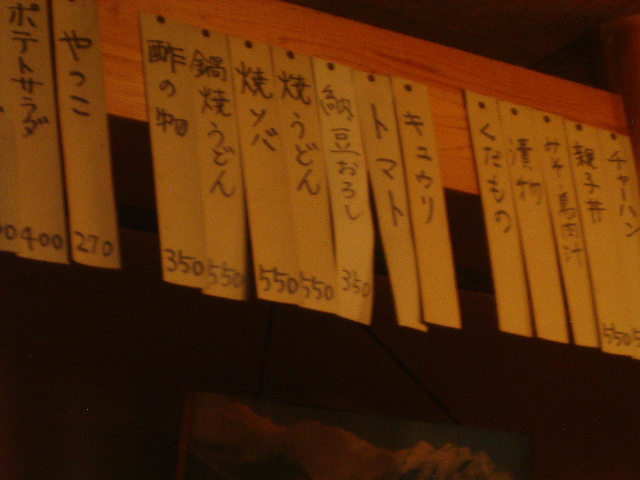 ポテトサラダ 400
やっこ 270
酢の物 350
鍋焼うどん 550
焼ソバ 550
焼うどん 550
納豆おろし 350
トマト
キュウリ
くだもの
漬物
みそ・鳥肉汁
親子丼 550
チャーハン